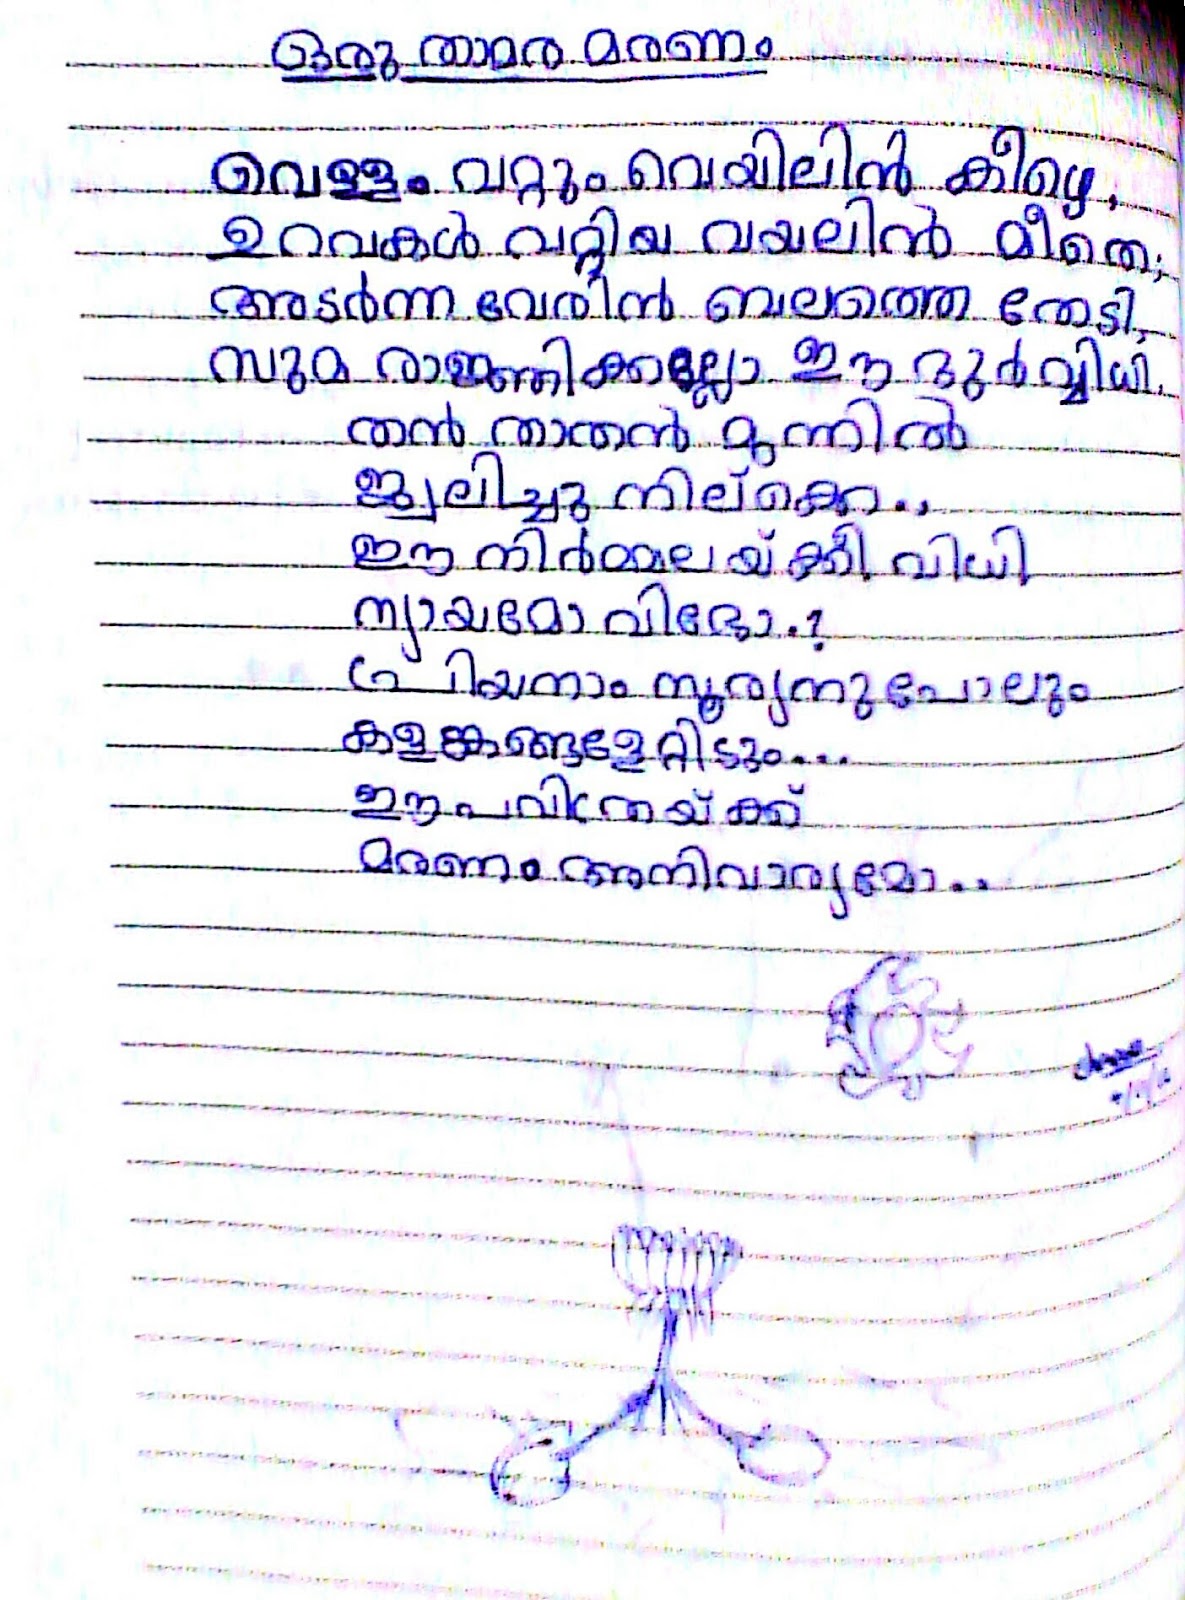 ഒരു താമര മരണം
വെള്ളം വറ്റും വെയിലിൻ കീഴെ,
ഉറവകൾ വറ്റിയ വയലിൻ മീതെ;
അടർന്ന വേരിൻ ബലത്തെ തേടി,
സുമ രാജ്ഞിക്കല്ലോ ഈ ദുർവ്വിധി.
തൻ താതൻ മുന്നിൽ
ജ്വലിച്ചു നില്ക്കെ..
ഈ നിർമ്മലയ്ക്കീ വിധി
ന്യായമോ വിഭോ.?
പ്രിയനാം സൂര്യനുപോലും
കളങ്കങ്ങളേറ്റിടും...
ഈ പവിത്രേയ്ക്ക്
മരണം അനിവാര്യമോ..